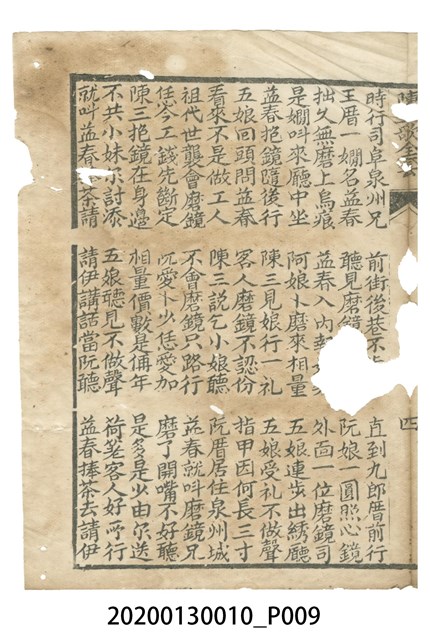 歌全
四
時行司阜泉州兄 前街後巷不 直到九郎厝前行
王厝一嫺名益春 聽見磨鏡 阮娘一圓照心鏡
拙久無磨上烏痕 益春入內 外面一位磨鏡司
是嫺叫來廳中坐 阿娘卜磨來相量 五娘連步出綉廳
益春抱鏡隨後行 陳三見娘行一礼 五娘受礼不做聲
五娘回頭問益春 客人磨鏡不認份 指甲因何長三寸
看來不是做工人 陳三說乞小娘聽 阮厝居住泉州城
祖代世襲會磨鏡 不會磨鏡只路行 益春就叫磨鏡兄
任岑工錢先斷定 阮愛卜少恁愛加 磨了開嘴不好聽
陳三抱鏡在身邊 相量價數是俩年 是多是少由尔送
不共小妹尔討添 五娘聽見不做聲 荷老客人好所行
就叫益春茶請 請伊講話當阮聽 益春捧茶去請伊
20200130010_P009